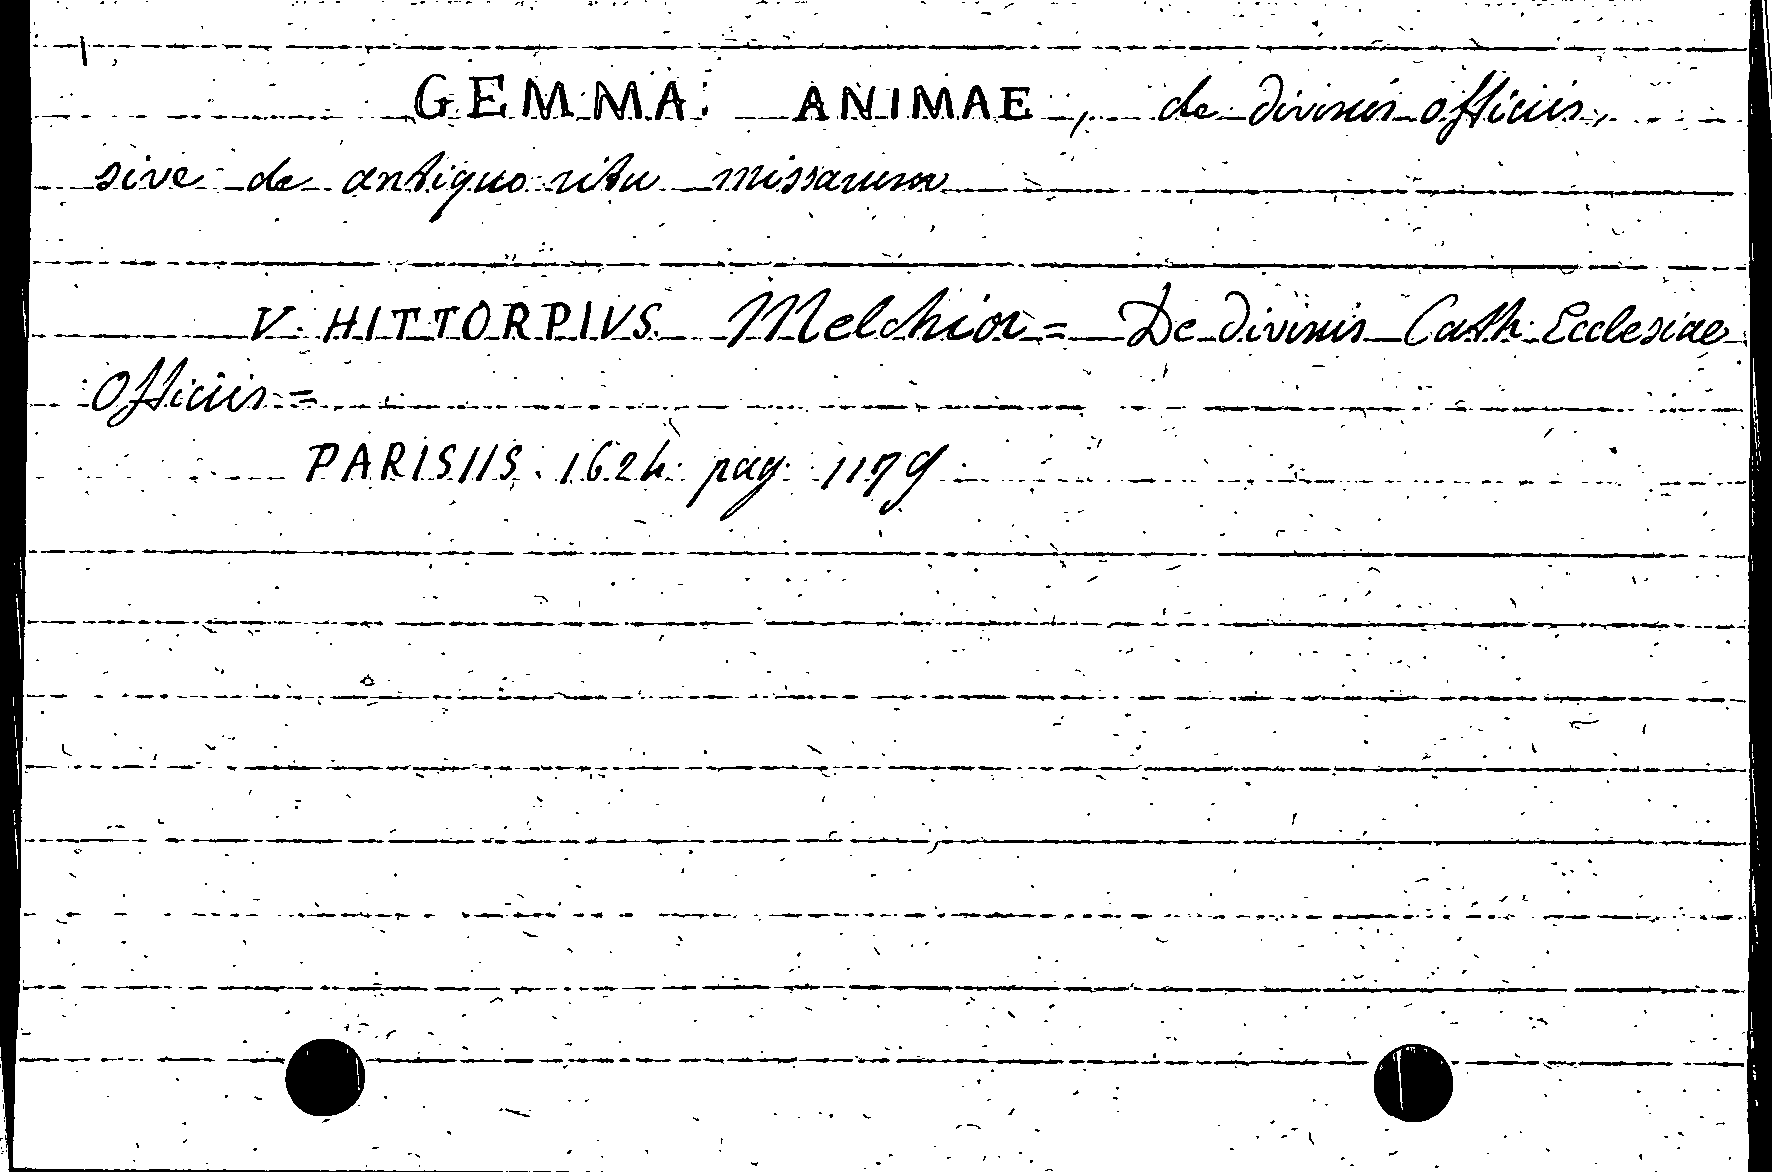 GEMMA ANIMAE, de divinis officiis,
sive de antiquo ritu missarum
V. HITTORPIVS Melchior = De divinis Cath. Ecclesiae
Officiis =
PARISIIS. 1624. pag. 1179